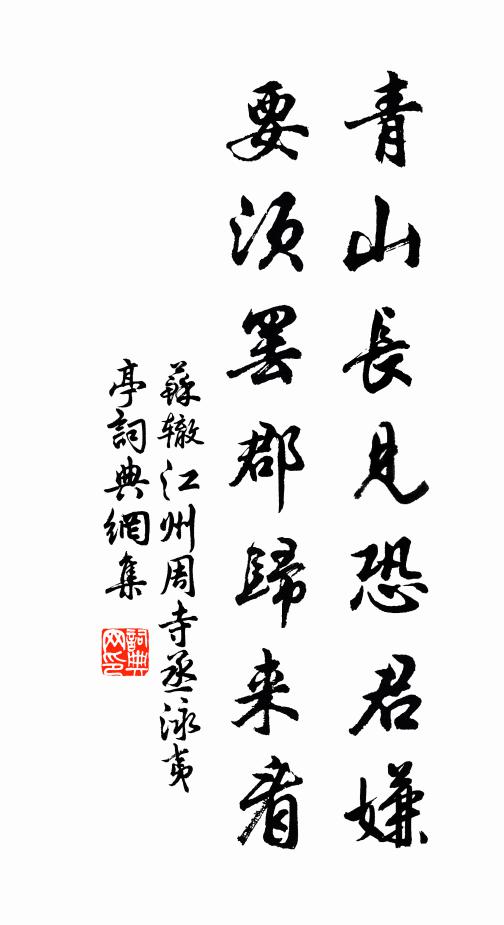 青山長見恐君嫌
要須罷郡歸来看
蘇轍江州周寺丞泳夷
亭詞典網集
詞典网印